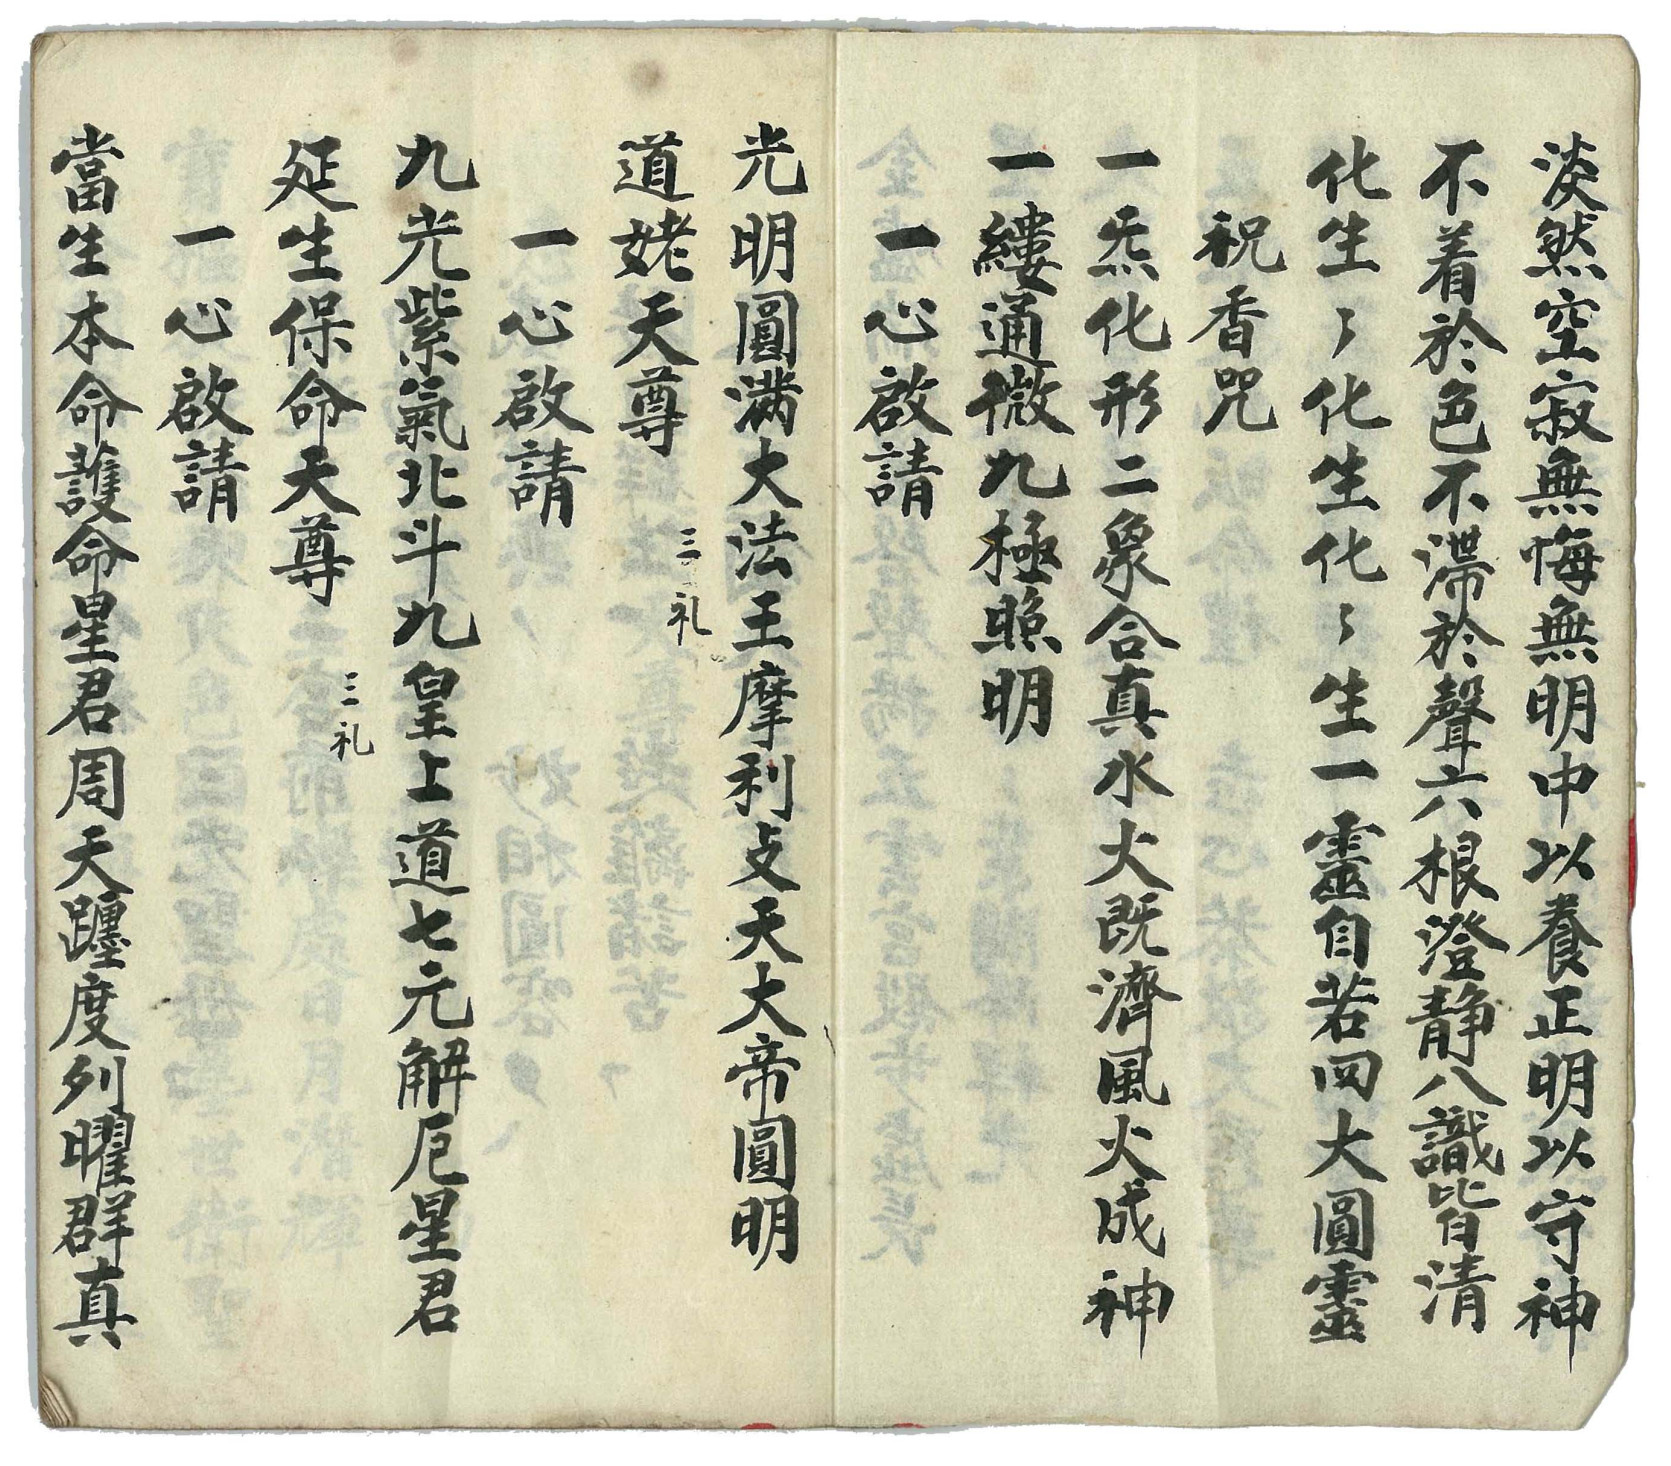 淡然空寂無悔無明中以養正明以守神
不着於色不滯於聲六根澄静八識皆清
化生〻化生化〻生一靈自若四大圓靈
祝香咒
一炁化形二象合真水火既濟風火成神
一縷通微九極照明
一心啟請
光明圓满大法王摩利攴天大帝圓明
道姥天尊
三礼
一心啟請
九光紫氣北斗九皇上道七元解厄星君
延生保命天尊
三礼
一心啟請
當生本命護命星君周天躔度列曜群真